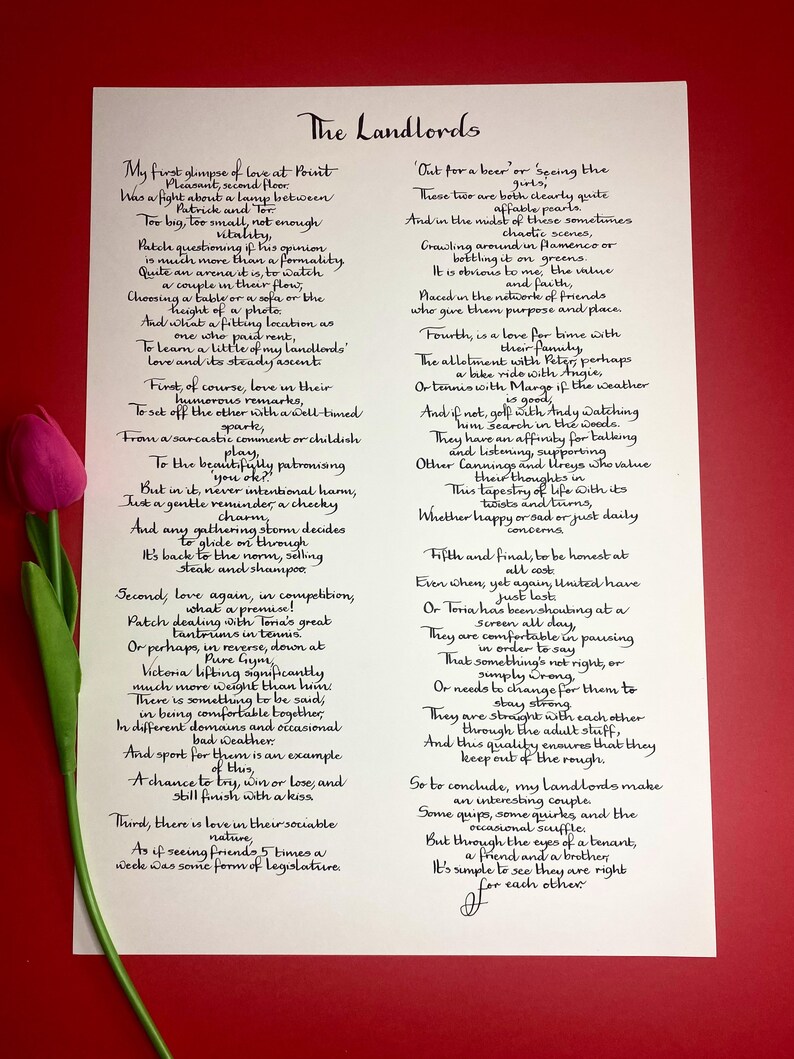 The Landlords
My first glimpse of love at Point
Pleasant, second floor.
Was a fight about a lamp between
Patrick and Tor.
Too big, too small, not enough
vitality,
Patch questioning if his opinion
is much more than a formality.
Quite an arena it is, to watch
a couple in their flow,
Choosing a table or a sofa or the
height of a photo.
And what a fitting location as
one who paid rent,
To learn a little of my landlords'
love and its steady ascent.
First, of course, love in their
humorous remarks,
To set off the other with a well-timed
spark,
From a sarcastic comment or childish
play,
To the beautifully patronising
'you ok?'
But in it, never intentional harm,
Just a gentle reminder, a cheeky
charm,
And any gathering storm decides
to glide on through
It's back to the norm, selling
steak and shampoo.
Second, love again, in competition,
what a premise!
Patch dealing with Toria's great
tantrums in tennis.
Or perhaps, in reverse, down at
Pure Gym,
Victoria lifting significantly
much more weight than him.
There is something to be said,
in being comfortable together,
In different domains and occasional
bad weather.
And sport for them is an example
of this,
A chance to try, win or lose, and
still finish with a kiss.
Third, there is love in their sociable
nature,
As if seeing friends 5 times a
week was some form of legislature.
'Out for a beer' or 'seeing the
girls',
These two are both clearly quite
affable pearls.
And in the midst of these sometimes
chaotic scenes,
Crawling around in flamenco or
bottling it on greens.
It is obvious to me, the value
and faith,
Placed in the network of friends
who give them purpose and place.
Fourth, is a love for time with
their family,
The allotment with Peter, perhaps
a bike ride with Angie,
Or tennis with Margo if the weather
is good,
And if not, golf with Andy watching
him search in the woods.
They have an affinity for talking
and listening, supporting
Other Cannings and Ureys who value
their thoughts in
This tapestry of life with its
twists and turns,
Whether happy or sad or just daily
concerns.
Fifth and final, to be honest at
all cost.
Even when, yet again, United have
just lost.
Or Toria has been shouting at a
screen all day,
They are comfortable in pausing
in order to say
That something's not right, or
simply wrong,
Or needs to change for them to
stay strong.
They are straight with each other
through the adult stuff,
And this quality ensures that they
keep out of the rough.
So to conclude, my landlords make
an interesting couple.
Some quips, some quirks, and the
occasional scuffle.
But through the eyes of a tenant,
a friend and a brother,
It's simple to see they are right
for each other.